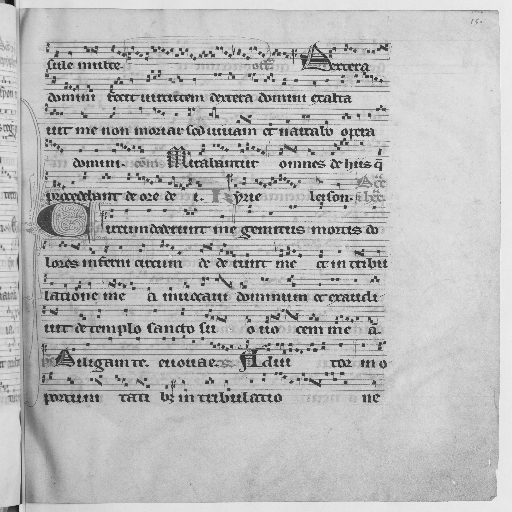 sule multe. Dextera
domini fecit uirtutem dextera domini exalta
uit me non moriar sed uiuam et narrabo opera
domini. Mirabantur omnes de hiis q̄
procedebant de ore de i. Kyrie leison.
Circumdederunt me gemitus mortis do
lores inferni circum de de runt me et in tribu
latione me a inuocaui dominum et exaudi
uit de templo sancto su o uo cem me a.
Diligam te. euouae. Adiu tor in o
portuni tati bꝫ in tribulatio ne